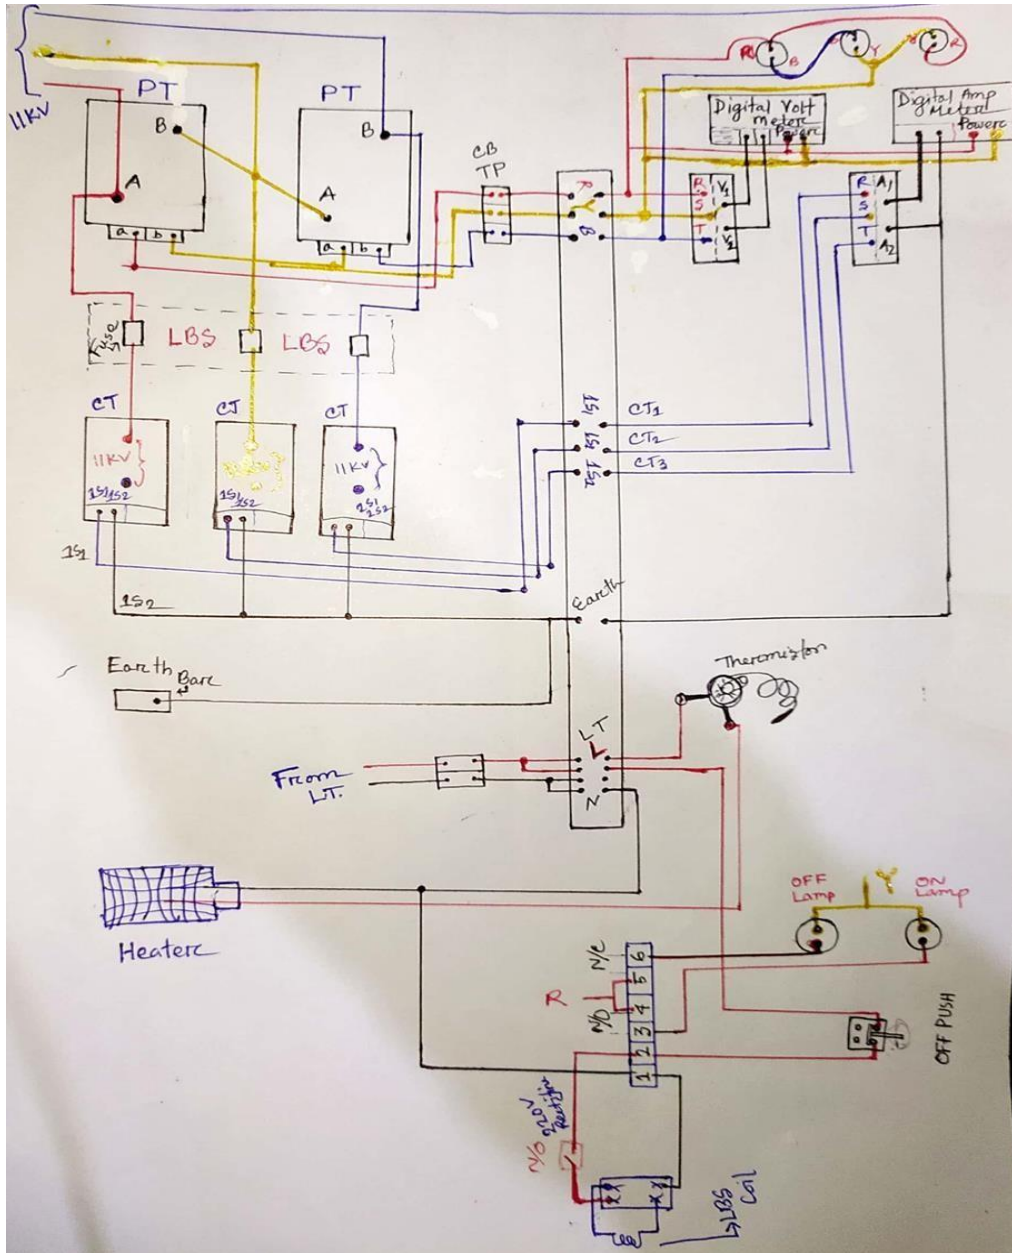 11KV
PT
PT
B
A
B
A
a b
a b
CB
TP
R
Y
B
R
B
Y
R
Digital Volt
meterc
Powerc
Digital Amp
Meterc
Powerc
R
S
T
V1
V2
R
S
T
A1
A2
Fuse
LBS
LBS
CT
CT
CT
11KV
11KV
1S1 1S2
1S1
1S2
1S1
1S2
1S1
1S1
1S2
CT1
CT2
CT3
1S1
1S2
Earth
Earcth
Barc
Thermistorc
From
LT.
LT
L
N
Heaterc
OFF
Lamp
Y
ON
Lamp
N/C
R
N/O
6
5
4
3
2
1
OFF PUSH
220V
Rectifire
N/O
LBS
Coil